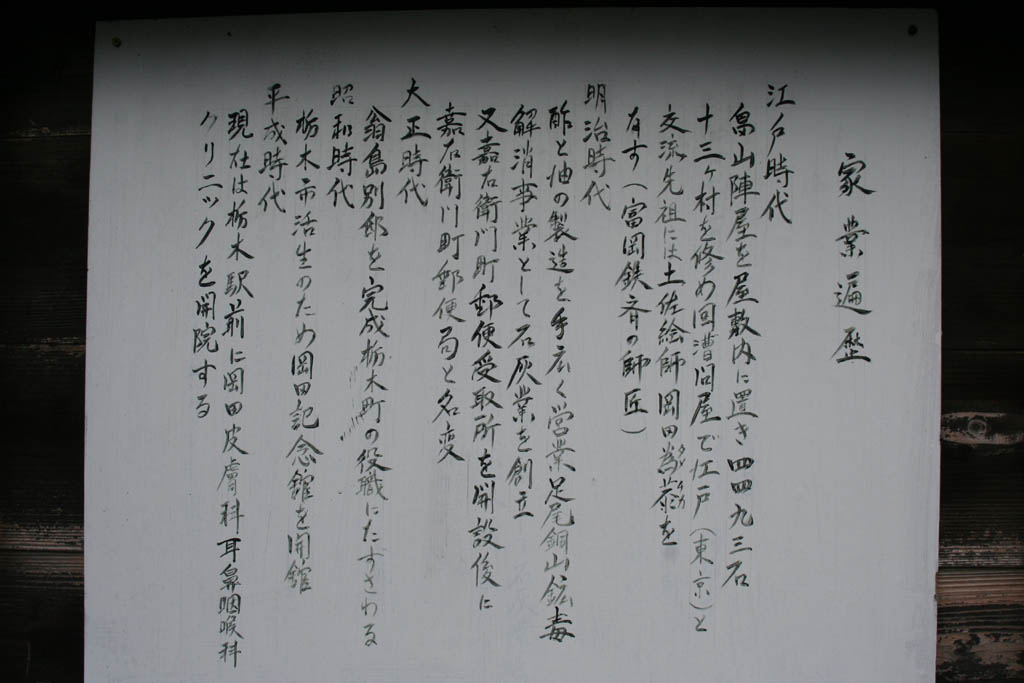 家業遍歴
江戸時代
畠山陣屋を屋敷内に置き四四九三石
十三ヶ村を修め回漕問屋で江戸(東京)と
交流先祖には土佐絵師岡田為恭を
有す(富岡鉄斉の師匠)
明治時代
酢と油の製造を手広く営業足尾銅山鉱毒
解消事業として石灰業を創立
又嘉右衛門町郵便受取所を開設後に
嘉右衛川町郵便局と名変
大正時代
翁島別邸を完成栃木町の役職にたずさわる
昭和時代
栃木市活生のため岡田記念館を開館
平成時代
現在は栃木駅前に岡田皮膚科耳鼻咽喉科
クリニックを開院する